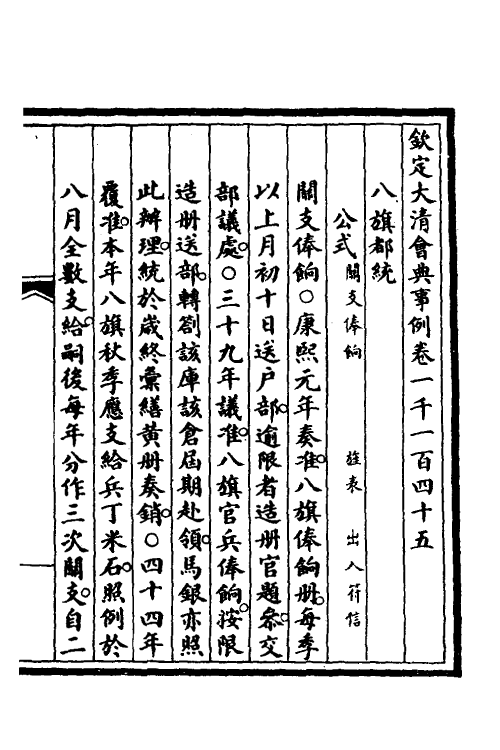 欽定大清會典事例卷一千一百四十五
八旗都統
公式 關支俸餉 旌表 出入符信
關支俸餉○康熙元年奏准。八旗俸餉册。每季
以上月初十日送户部。逾限者造册官題叅。交
部議處。○三十九年議准。八旗官兵俸餉。按限
造册送部。轉劄該庫該倉屆期赴領。馬銀亦照
此辦理。統於歲終彙繕黄册奏銷。○四十四年
覆准。本年八旗秋季應支給兵丁米石。照例於
八月全數支給。嗣後每年分作三次關支。自二